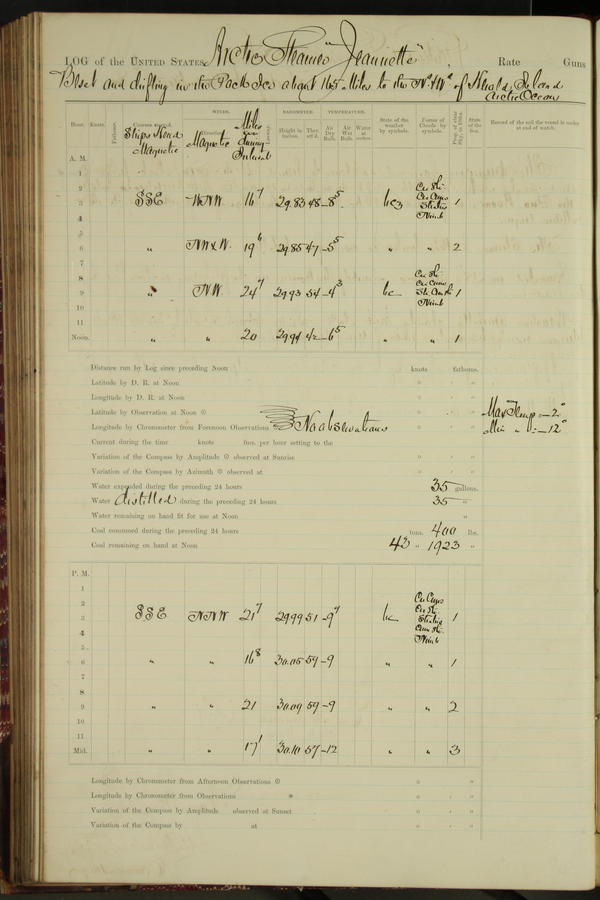 LOG of the UNITED STATES Arctic Steamer "Jeannette", Rate Guns
Beset and drifting in the Pack Ice about 165 Miles to the Nd & Wd of Herald Island
Arctic Ocean
WINDS. BAROMETER. TEMPERATURE.
Hour. Knots. Fathoms. Courses steered. Ships Head Magnetic Magnetic Miles during Interval Height in inches. Ther. att'd. Air Dry Bulb. Air Wet Bulb. Water at surface. State of the weather by symbols. Forms of Clouds by symbols. State of the Sea. Record of the sail the vessel is under at end of watch.
A. M.
1
2
3 SSE WNW 16⁷ 29.83 48 -8⁵ bcs Cu Sti Cir Cum Stratus Nimb 1
4
5
6 " NW x W. 19⁶ 29.85 47 -5⁵ " " 2
7
8
9 " NW 24⁷ 29.93 54 -4³ bc Cu Sti Cir Cum Nimb 1
10
11
Noon. " " 20 29.91 42 -6⁵ " " 1
Distance run by Log since preceding Noon knots fathoms.
Latitude by D. R. at Noon ° ' "
Longitude by D. R. at Noon ° ' "
Latitude by Observation at Noon ⊙ ° ' " Max Temp = -2°
Longitude by Chronometer from Forenoon Observations No observations ° ' " Min " : -12°
Current during the time knots fms. per hour setting to the
Variation of the Compass by Amplitude ⊙ observed at Sunrise ° ' "
Variation of the Compass by Azimuth ⊙ observed at ° ' "
Water expended during the preceding 24 hours 35 gallons.
Water distilled during the preceding 24 hours 35 "
Water remaining on hand fit for use at Noon "
Coal consumed during the preceding 24 hours tons. 400 lbs.
Coal remaining on hand at Noon 43 " 1923 "
P. M.
1
2
3 SSE NNW 21⁷ 29.99 51 -9⁷ bc Cir Cum Cir Sti Stratus Cum Sti Nimb 1
4
5
6 " " 16⁸ 30.05 59 -9 " " 1
7
8
9 " " 21 30.09 59 -9 " " 2
10
11
Mid. " " 17¹ 30.10 57 -12 " " 3
Longitude by Chronometer from Afternoon Observations ⊙ ° ' "
Longitude by Chronometer from Observations * ° ' "
Variation of the Compass by Amplitude observed at Sunset ° ' "
Variation of the Compass by at ° ' "